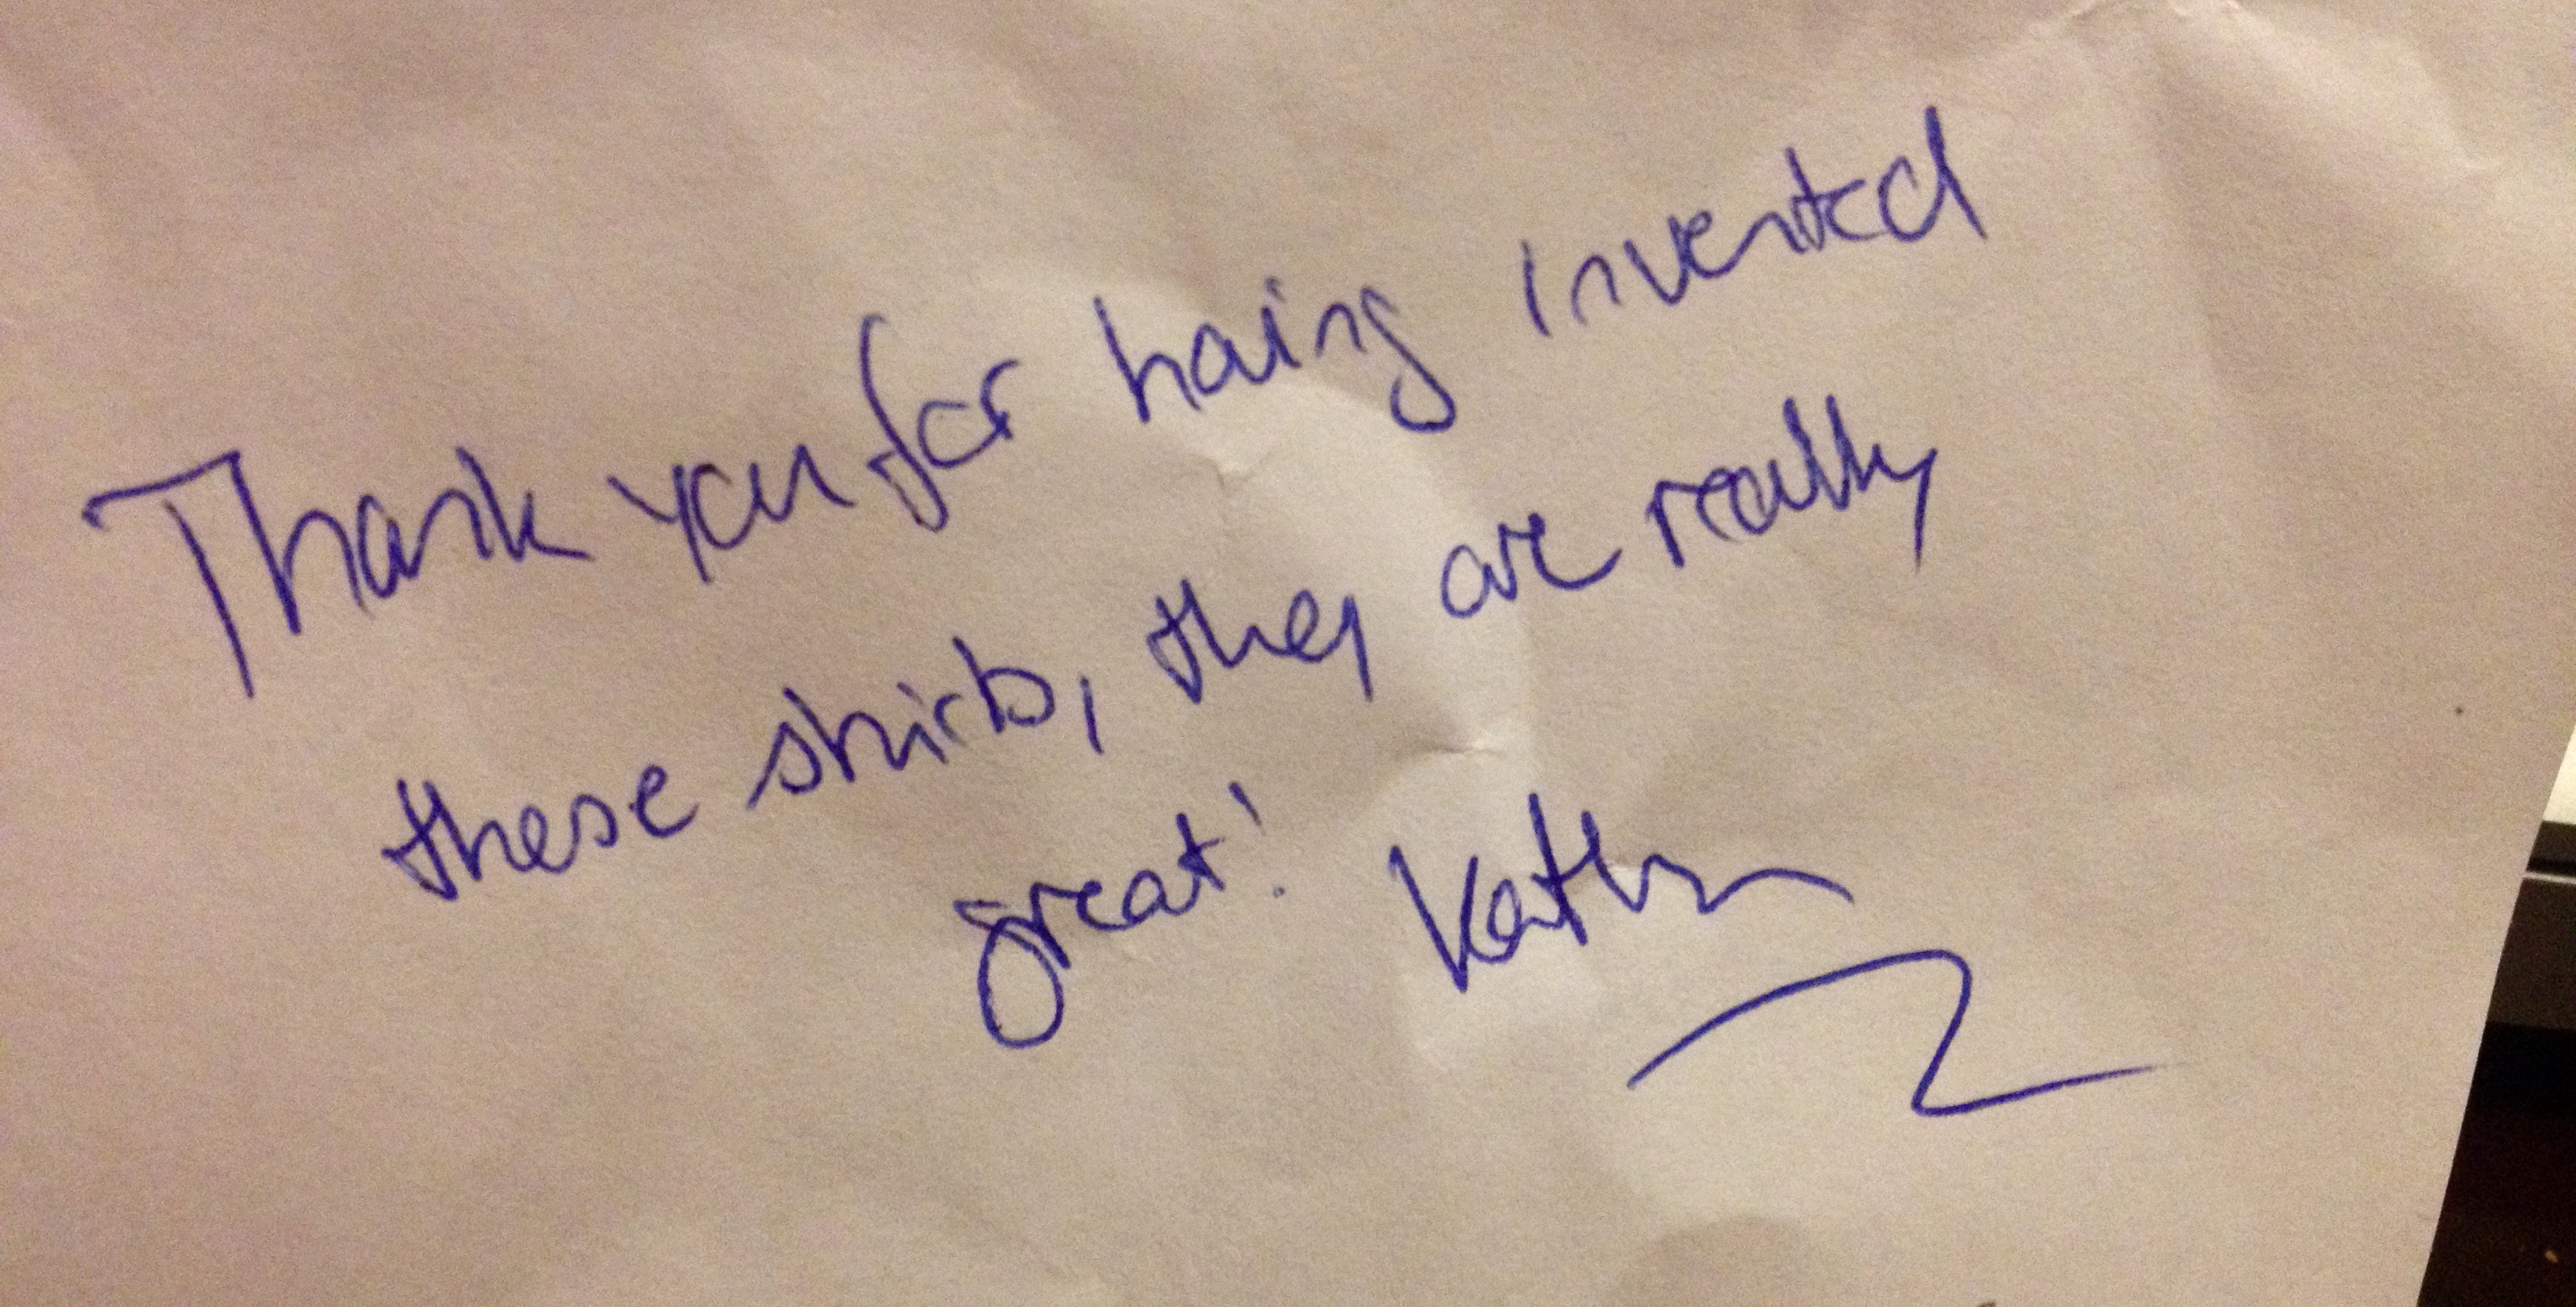 Thank you for having invented
these shirts, they are really
great! Kathrin